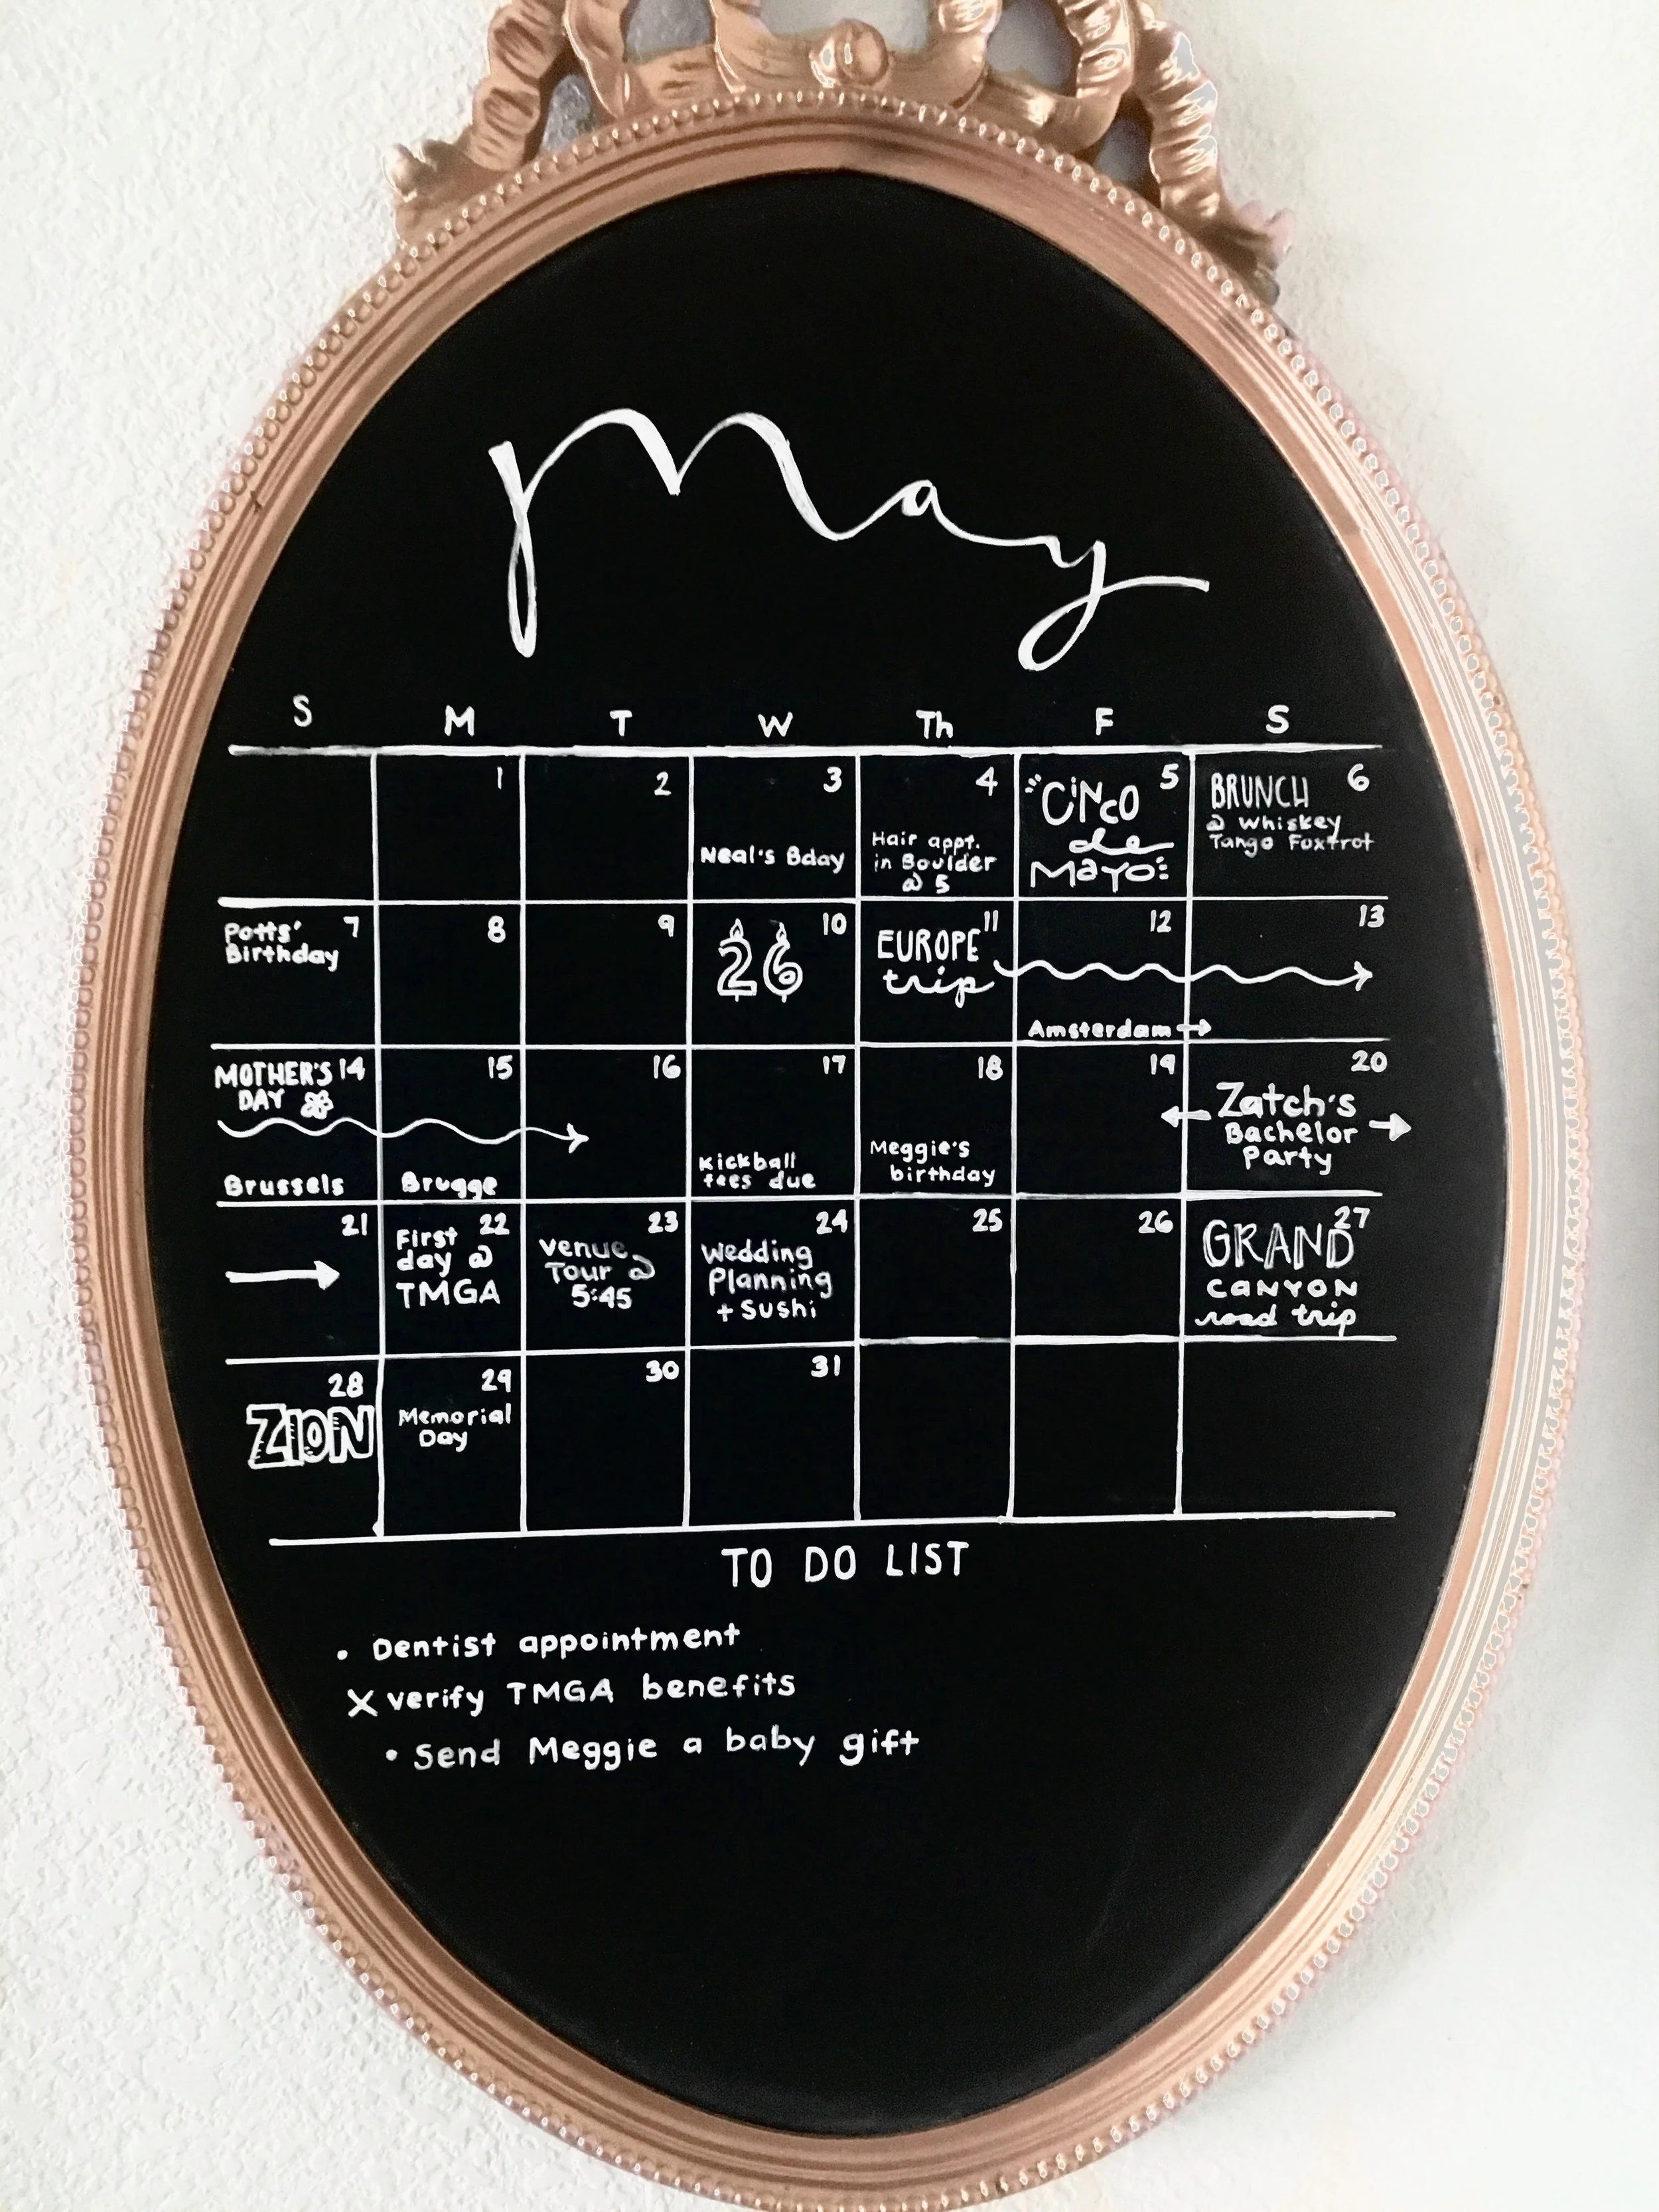 May
S M T W Th F S
1 2 3 4 5 6
Neal's Bday
Hair appt.
in Boulder
@ 5
"CINCO
de
MAYO"
BRUNCH
@ Whiskey
Tango Foxtrot
7 8 9 10 11 12 13
Potts'
Birthday
26
EUROPE
trip
Amsterdam
14 15 16 17 18 19 20
MOTHER'S
DAY
Brussels
Brugge
Kickball
fees due
Meggie's
birthday
Zatch's
Bachelor
Party
21 22 23 24 25 26 27
First
day @
TMGA
Venue
Tour @
5:45
Wedding
Planning
+ Sushi
GRAND
CANYON
road trip
28 29 30 31
ZION
Memorial
Day
TO DO LIST
• Dentist appointment
X verify TMGA benefits
• Send Meggie a baby gift